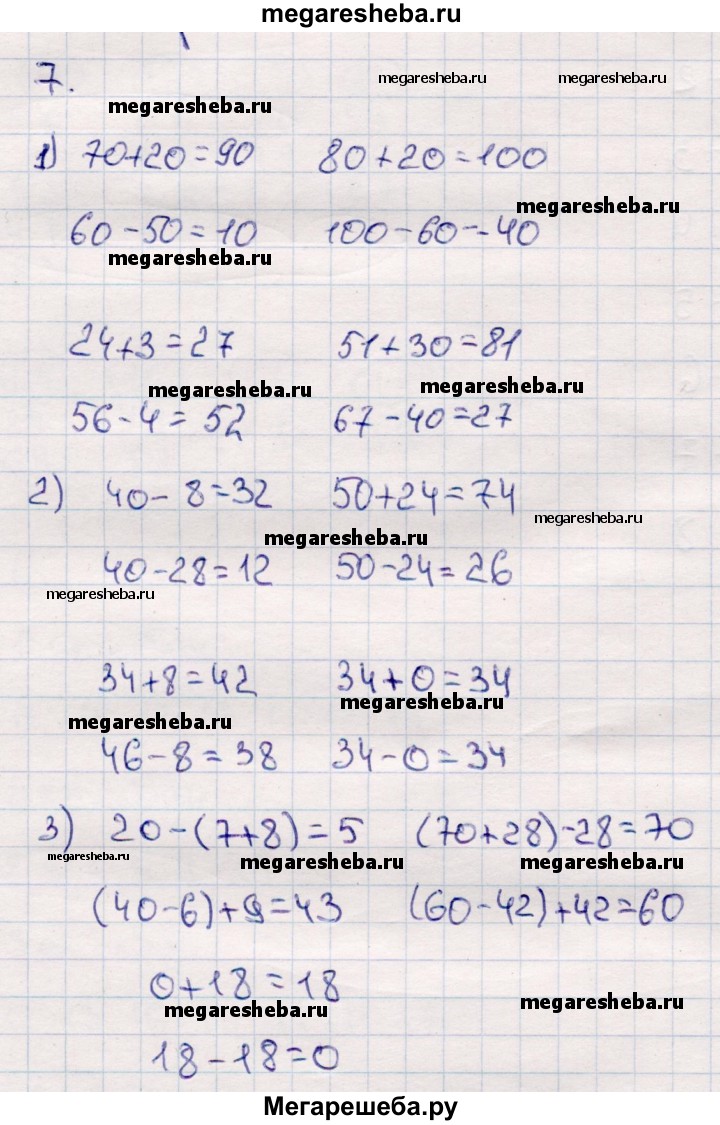 megaresheba.ru
7.
megaresheba.ru megaresheba.ru
megaresheba.ru
1) 70+20=90 80+20=100
megaresheba.ru
60-50=10 100-60=40
megaresheba.ru
24+3=27 51+30=81
megaresheba.ru megaresheba.ru
56-4=52 67-40=27
2) 40-8=32 50+24=74
megaresheba.ru
megaresheba.ru
40-28=12 50-24=26
megaresheba.ru
34+8=42 34+0=34
megaresheba.ru
megaresheba.ru
46-8=38 34-0=34
3) 20-(7+8)=5 (70+28)-28=70
megaresheba.ru megaresheba.ru megaresheba.ru
(40-6)+9=43 (60-42)+42=60
0+18=18
megaresheba.ru megaresheba.ru
18-18=0
Мегарешеба.ру